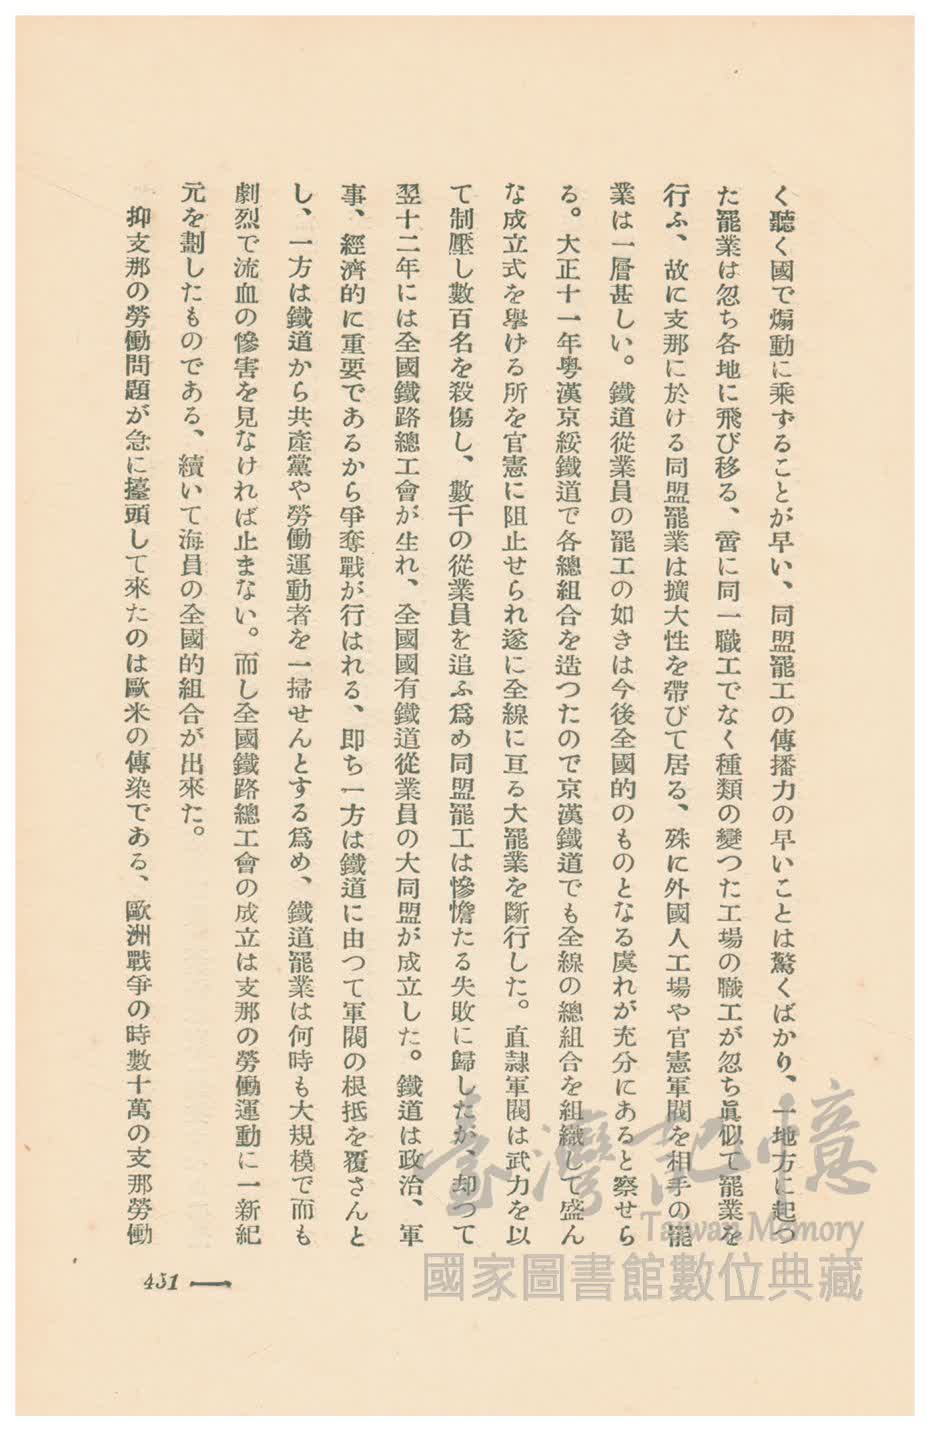 く聽く國で煽動に乘ずることが早い、同盟罷工の傳播力の早いことは驚くばかり、一地方に起つ
た罷業は忽ち各地に飛び移る、啻に同一職工でなく種類の變つた工場の職工が忽ち眞似て罷業を
行ふ、故に支那に於ける同盟罷業は擴大性を帶びて居る、殊に外國人工場や官憲軍閥を相手の罷
業は一層甚しい。鐵道從業員の罷工の如きは今後全國的のものとなる虞れが充分にあると察せら
る。大正十一年粤漢京綏鐵道で各總組合を造つたので京漢鐵道でも全線の總組合を組織して盛ん
な成立式を擧ける所を官憲に阻止せられ遂に全線に亙る大罷業を斷行した。直隷軍閥は武力を以
て制壓し數百名を殺傷し、數千の從業員を追ふ爲め同盟罷工は慘憺たる失敗に歸したが、却つて
翌十二年には全國鐵路總工會が生れ、全國國有鐵道從業員の大同盟が成立した。鐵道は政治、軍
事、經濟的に重要であるから爭奪戰が行はれる、即ち一方は鐵道に由つて軍閥の根抵を覆さんと
し、一方は鐵道から共產黨や勞働運動者を一掃せんとする爲め、鐵道罷業は何時も大規模で而も
劇烈で流血の慘害を見なければ止まない。而し全國鐵路總工會の成立は支那の勞働運動に一新紀
元を劃したものである、續いて海員の全國的組合が出來た。
抑支那の勞働問題が急に擡頭して來たのは歐米の傳染である、歐洲戰爭の時數十萬の支那勞働
451
臺灣記憶
Taiwan Memory
國家圖書館數位典藏